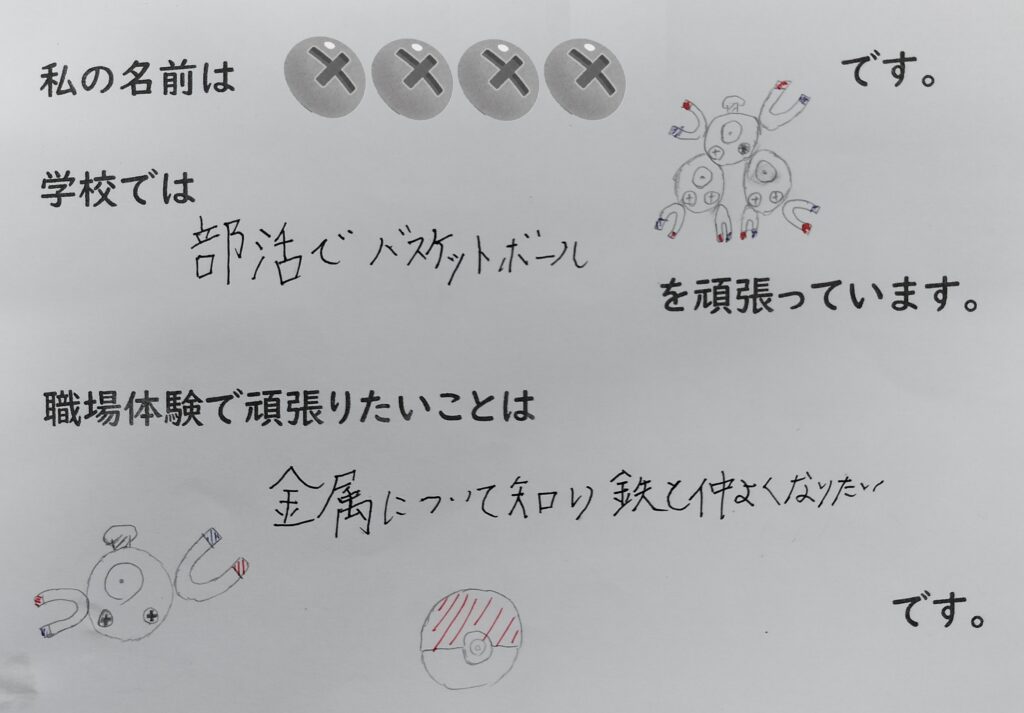 私の名前は です。
学校では
部活でバスケットボール
を頑張っています。
職場体験で頑張りたいことは
金属について知り鉄と仲よくなりたい
です。